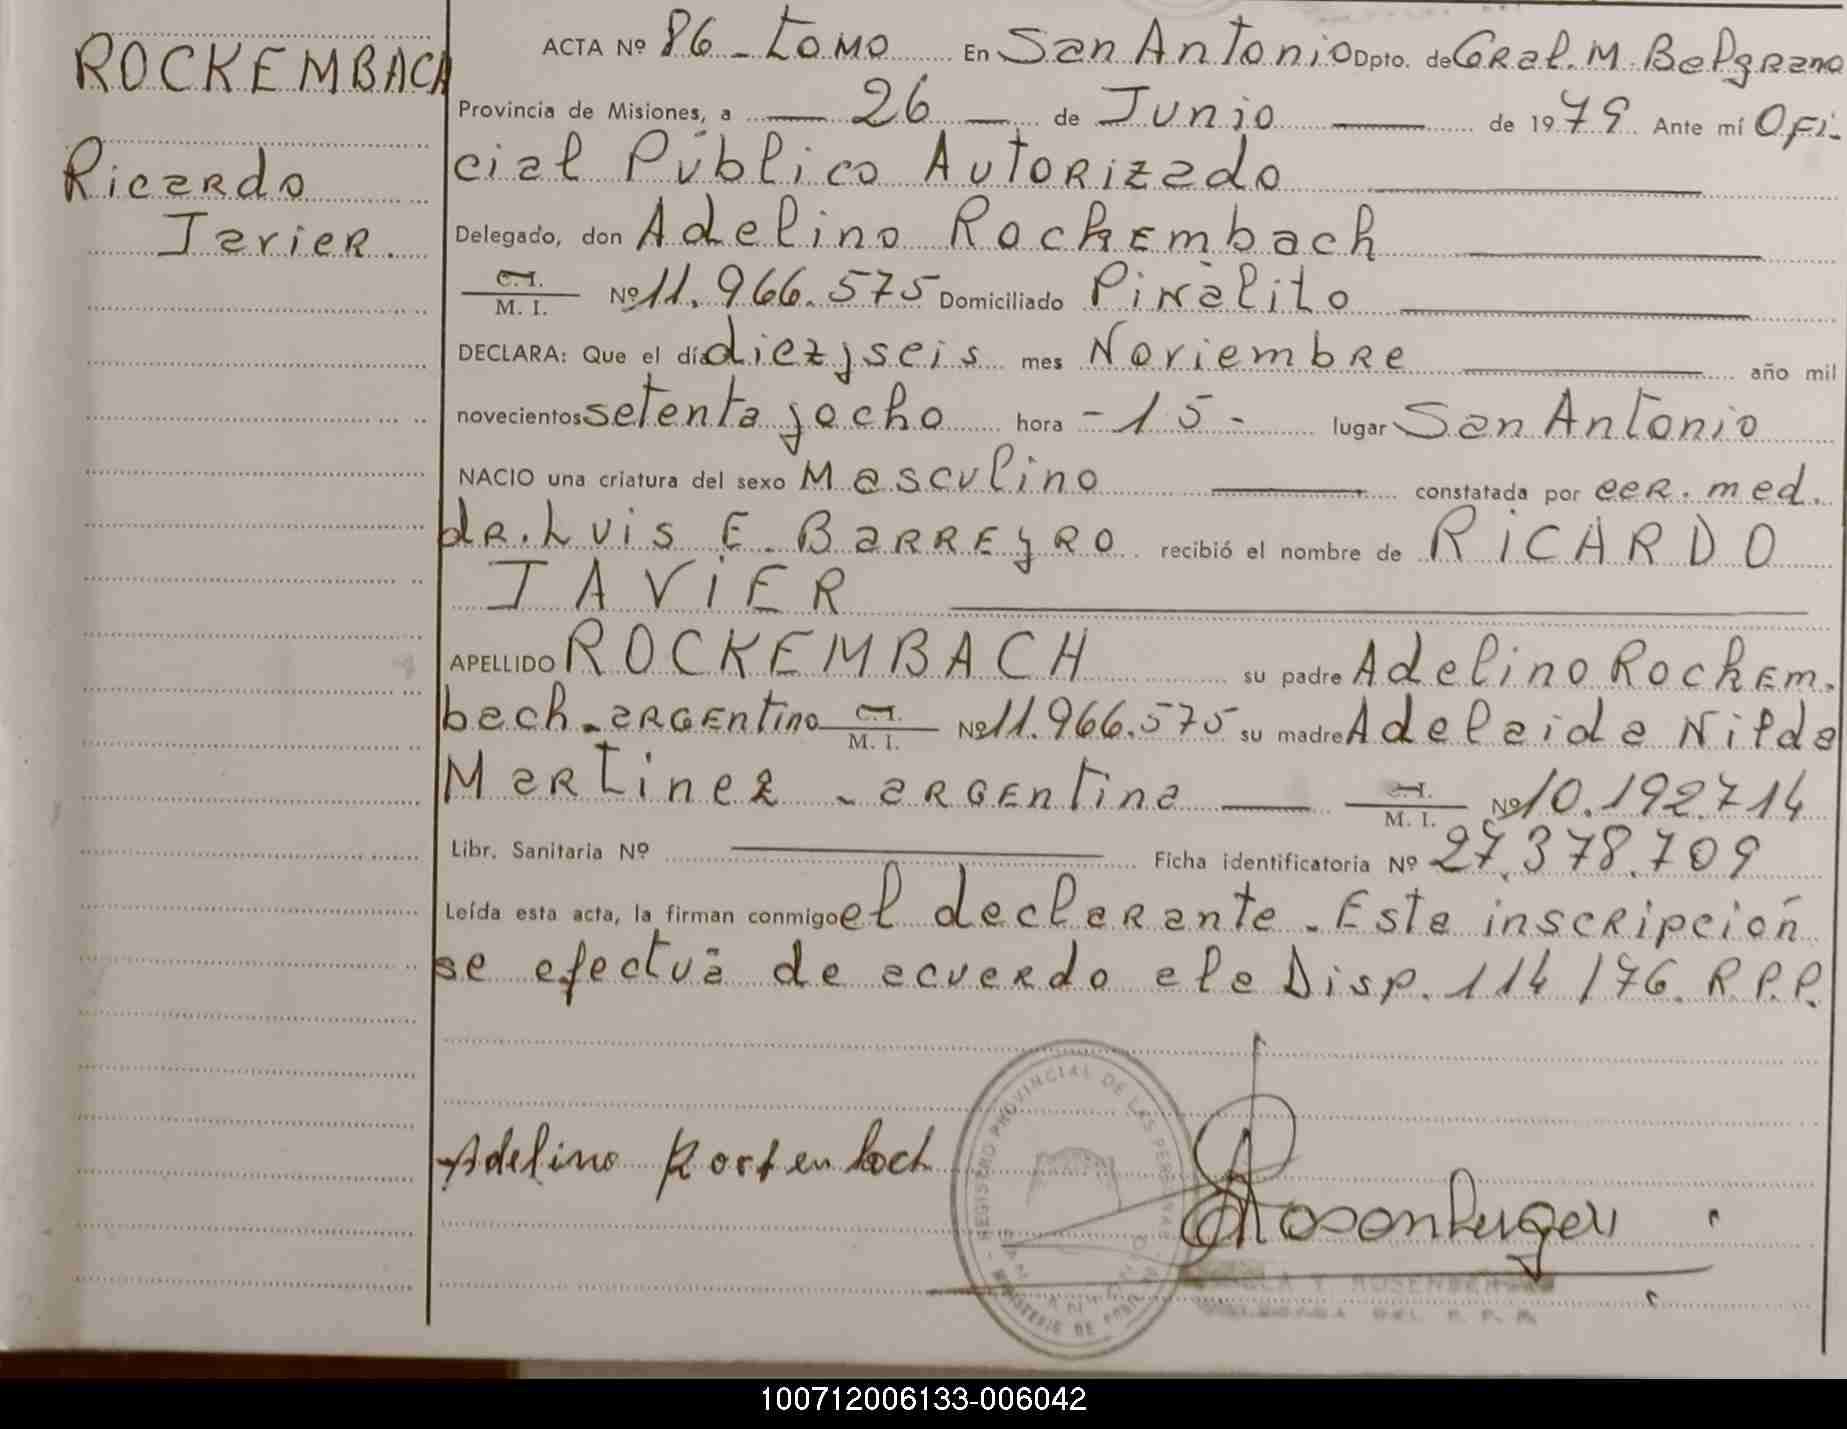 ROCKEMBACH
Ricardo
Javier.
ACTA Nº 86 - Tomo En San Antonio Dpto. de Gral. M. Belgrano
Provincia de Misiones, a 26 de Junio de 1979 Ante mí Ofi-
cial Público Autorizado
Delegado, don Adelino Rockembach
C. I.
M. I. Nº 11.966.575 Domiciliado Piñalito
DECLARA: Que el día diez y seis mes Noviembre año mil
novecientos setenta y ocho hora - 15 - lugar San Antonio
NACIO una criatura del sexo Masculino constatada por cer. med.
dr. Luis E. Barreyro recibió el nombre de RICARDO
JAVIER
APELLIDO ROCKEMBACH su padre Adelino Rockem-
bach - argentino C. I. M. I. Nº 11.966.575 su madre Adelaida Nilda
Martinez - argentina C. I. M. I. Nº 10.192.714
Libr. Sanitaria Nº Ficha identificatoria Nº 27.378.709
Leída esta acta, la firman conmigo el declarante. Esta inscripción
se efectúa de acuerdo a la Disp. 114/76. R.P.P.
REGISTRO PROVINCIAL DE LAS PERSONAS
SAN ANTONIO
MINISTERIO DE
Adelino
Rosenberger
ROSENBERGER
DEL R. P. P.
100712006133-006042